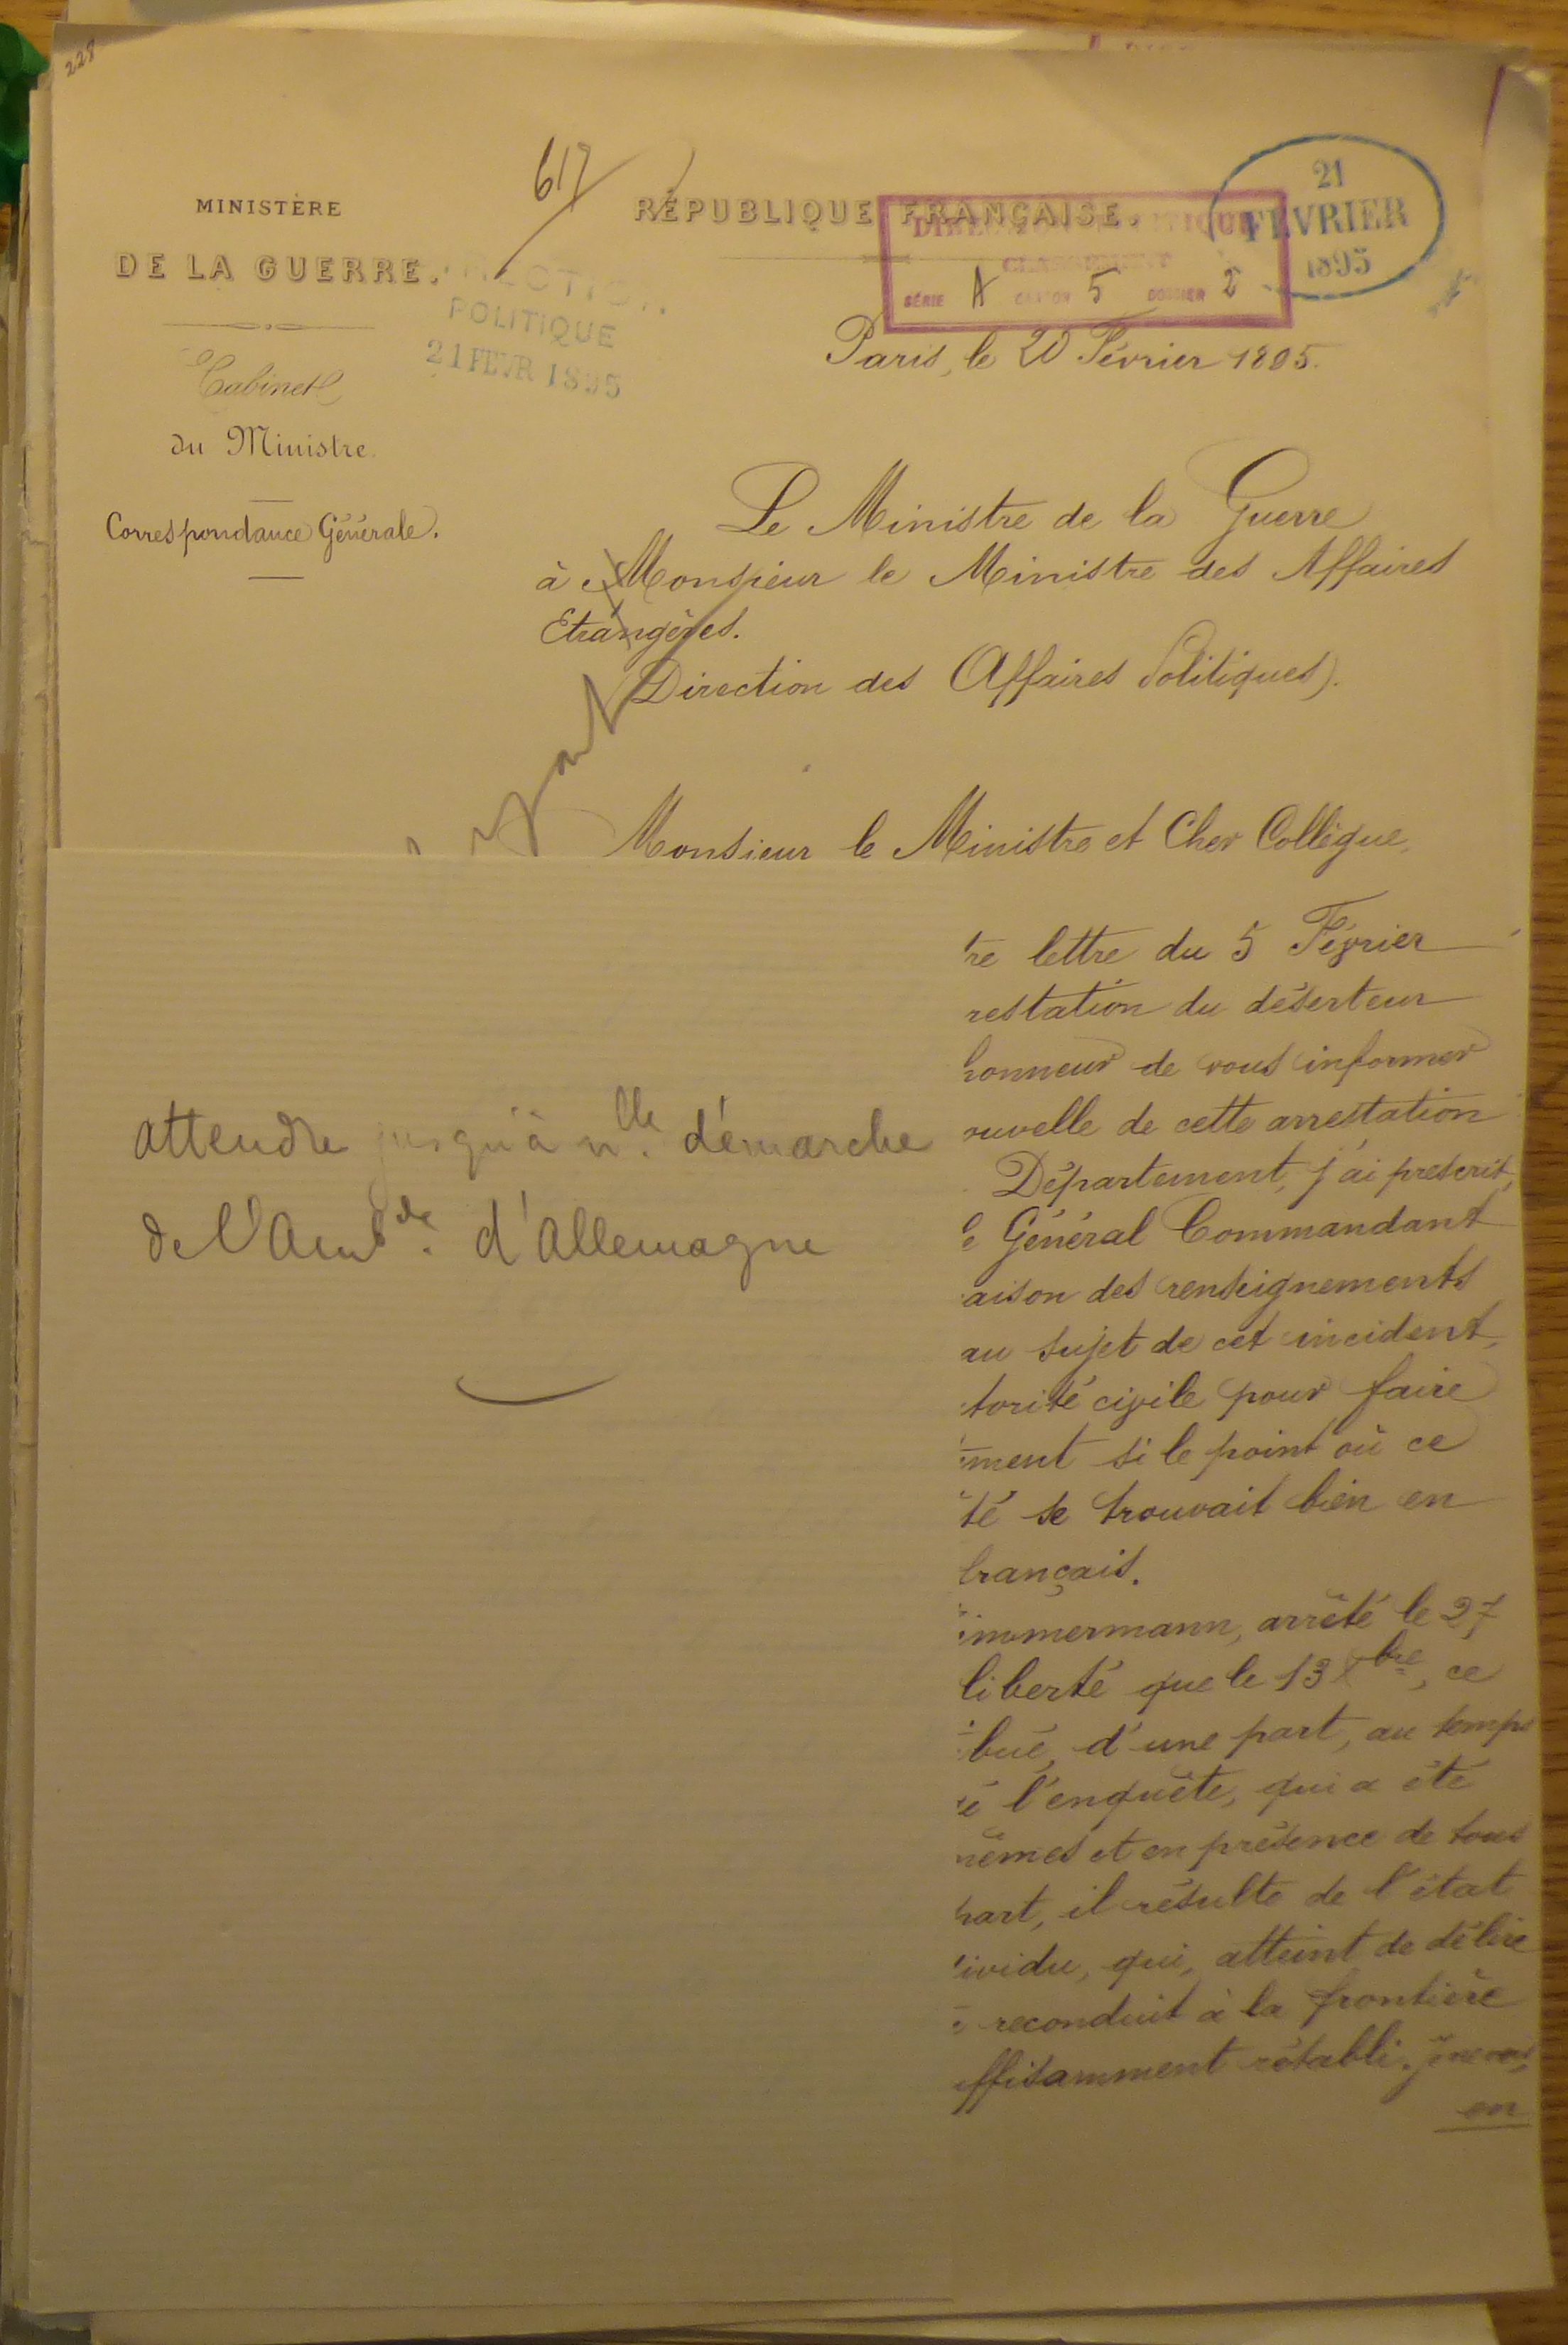 228
617
MINISTÈRE
DE LA GUERRE.
RÉPUBLIQUE FRANÇAISE.
DIRECTION POLITIQUE
CLASSEMENT
SÉRIE A CARTON 5 DOSSIER 2
21
FÉVRIER
1895
DIRECTION
POLITIQUE
21 FEVR 1895
Cabinet
du Ministre.
Correspondance Générale.
Paris, le 20 Février 1895.
Le Ministre de la Guerre
à Monsieur le Ministre des Affaires
Etrangères.
(Direction des Affaires Politiques).
Monsieur le Ministre et Cher Collègue,
tre lettre du 5 Février
restation du déserteur
honneur de vous informer
ouvelle de cette arrestation
Département, j'ai prescrit,
e Général Commandant
aison des renseignements
au sujet de cet incident,
torité civile pour faire
ment si le point où ce
té se trouvait bien en
français.
immermann, arrêté le 27
liberté que le 13 Xbre, ce
bué, d'une part, au temps
é l'enquête, qui a été
mêmes et en présence de tous
part, il résulte de l'état
ividu, qui, atteint de délire
reconduit à la frontière
uffisamment rétabli. Je ne vous
en
attendre jusqu'à nlle démarche
de l'Ambde d'Allemagne